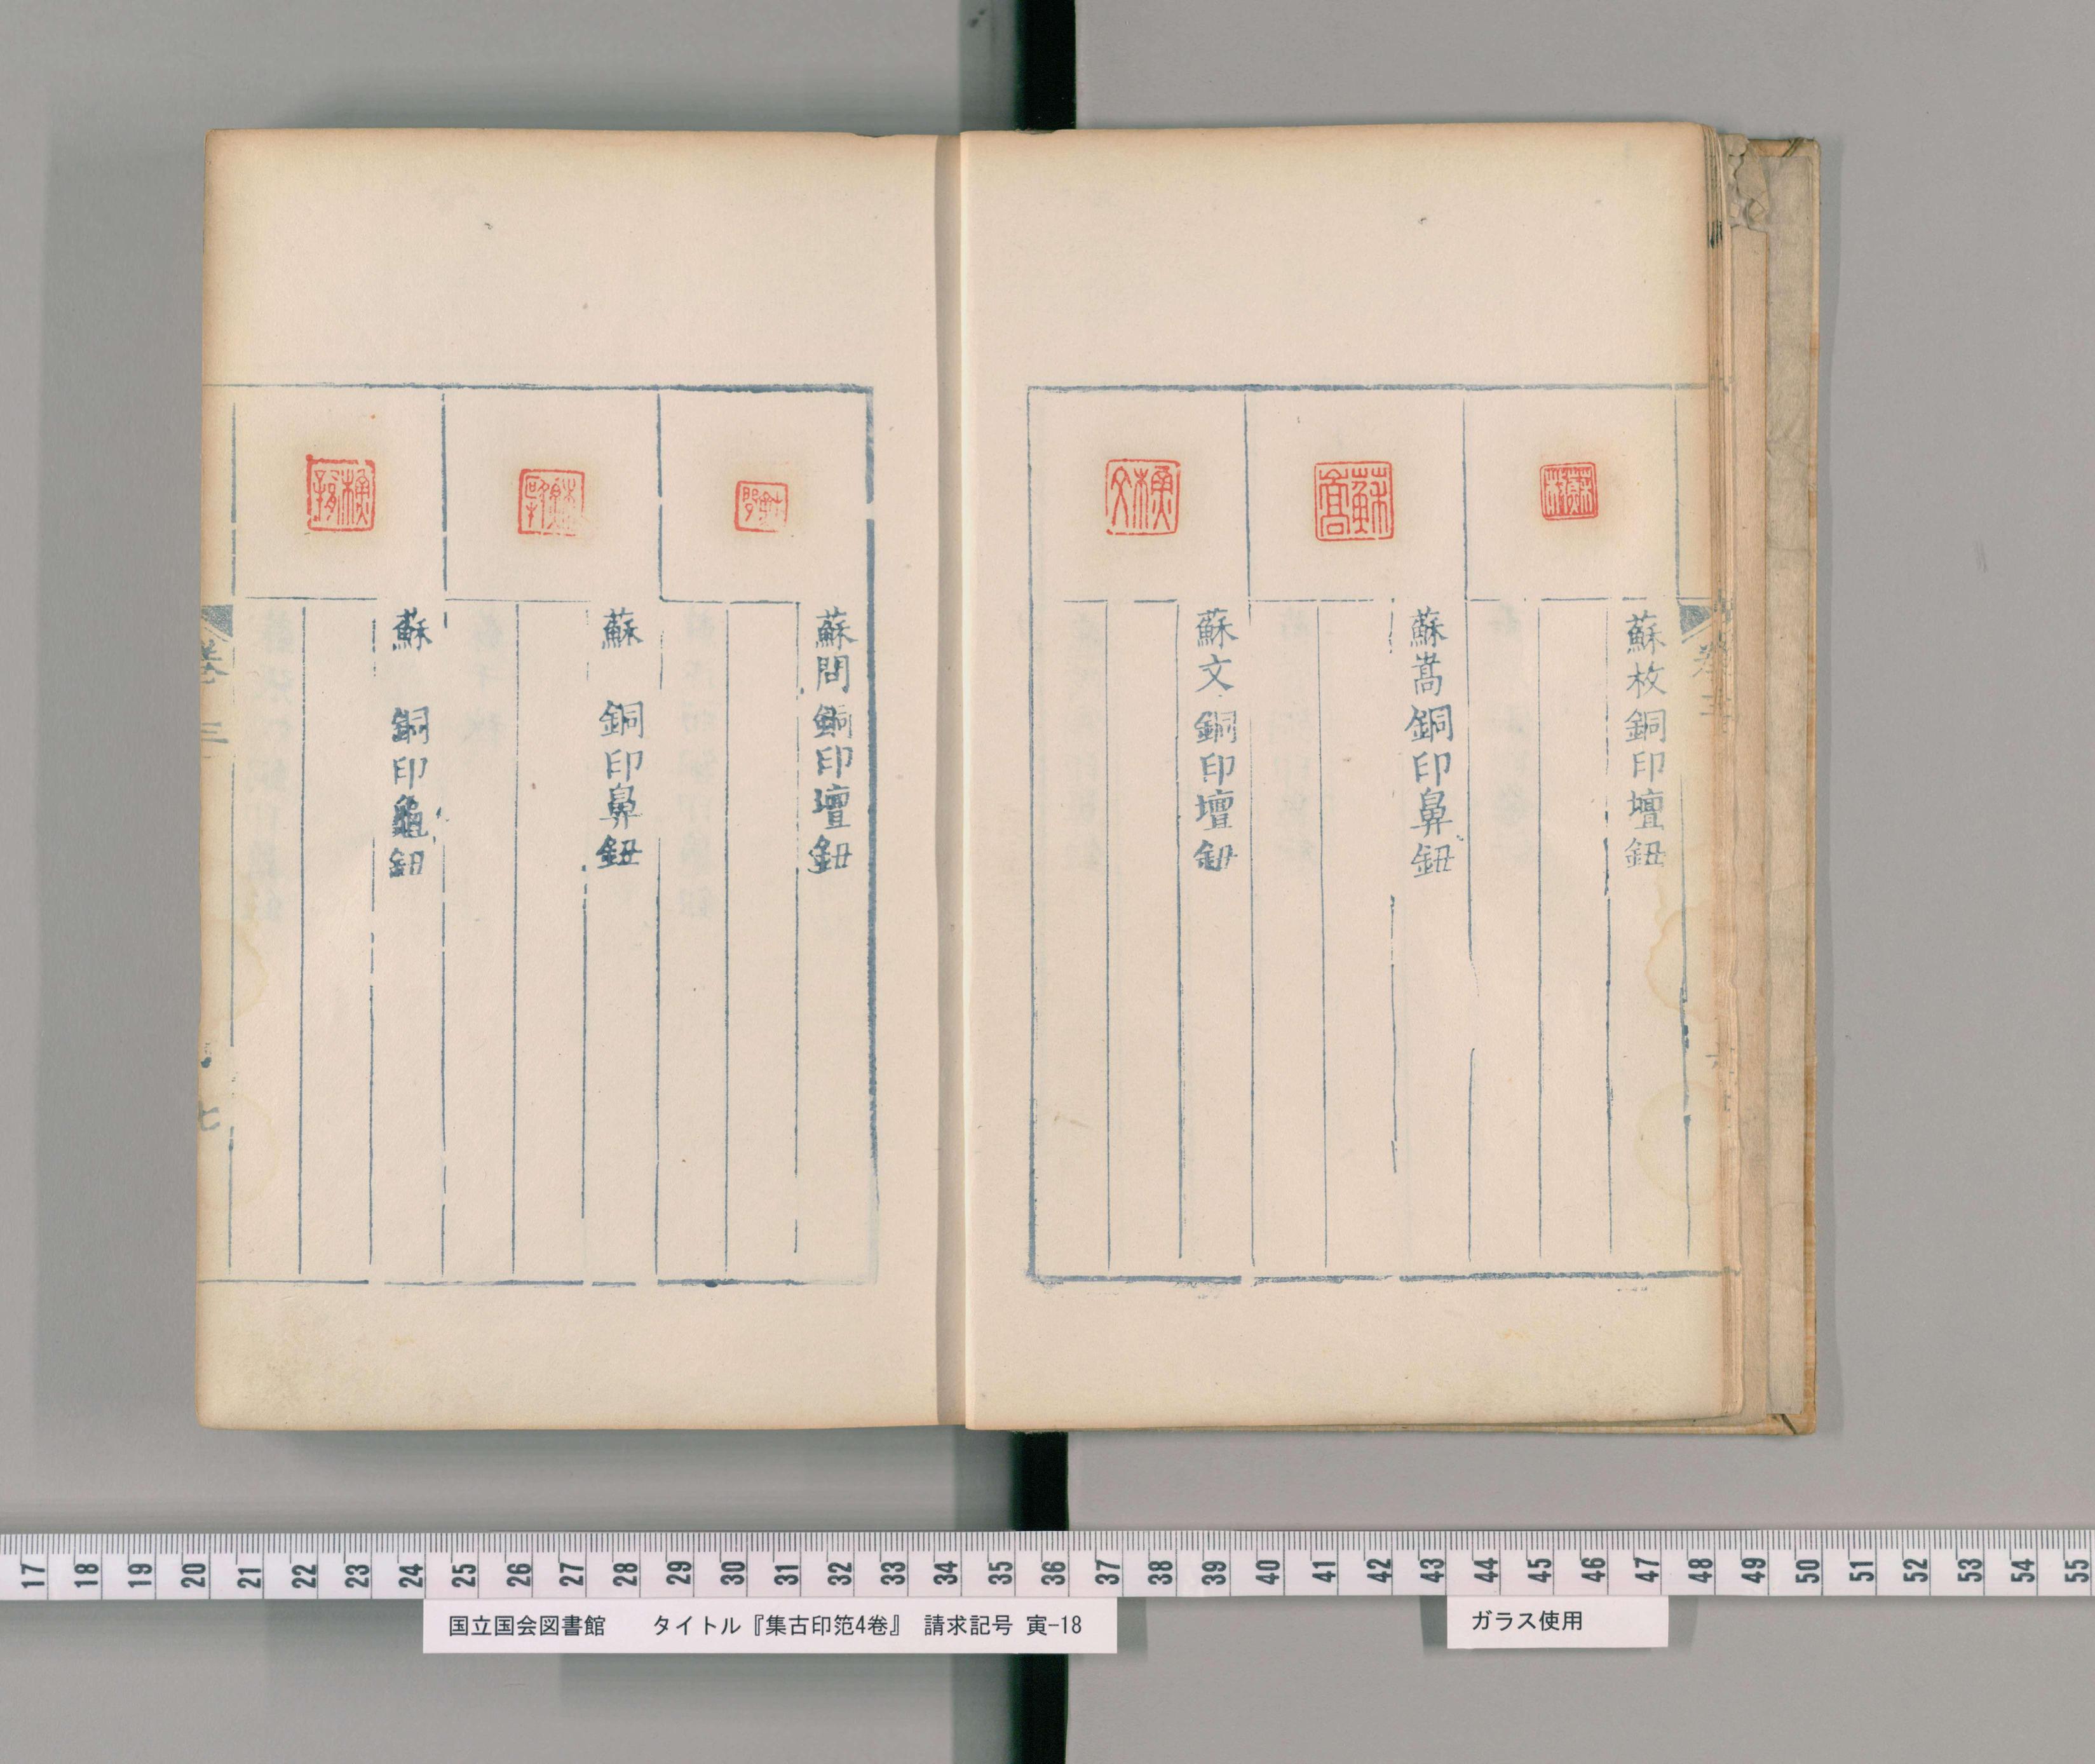 蘇枚銅印壇鈕
蘇嵩銅印鼻鈕
蘇文銅印壇鈕
蘇問銅印壇鈕
蘇　銅印鼻鈕
蘇　銅印龜鈕
卷三
七
17 18 19 20 21 22 23 24 25 26 27 28 29 30 31 32 33 34 35 36 37 38 39 40 41 42 43 44 45 46 47 48 49 50 51 52 53 54 55
国立国会図書館　タイトル『集古印笵4巻』　請求記号 寅-18
ガラス使用